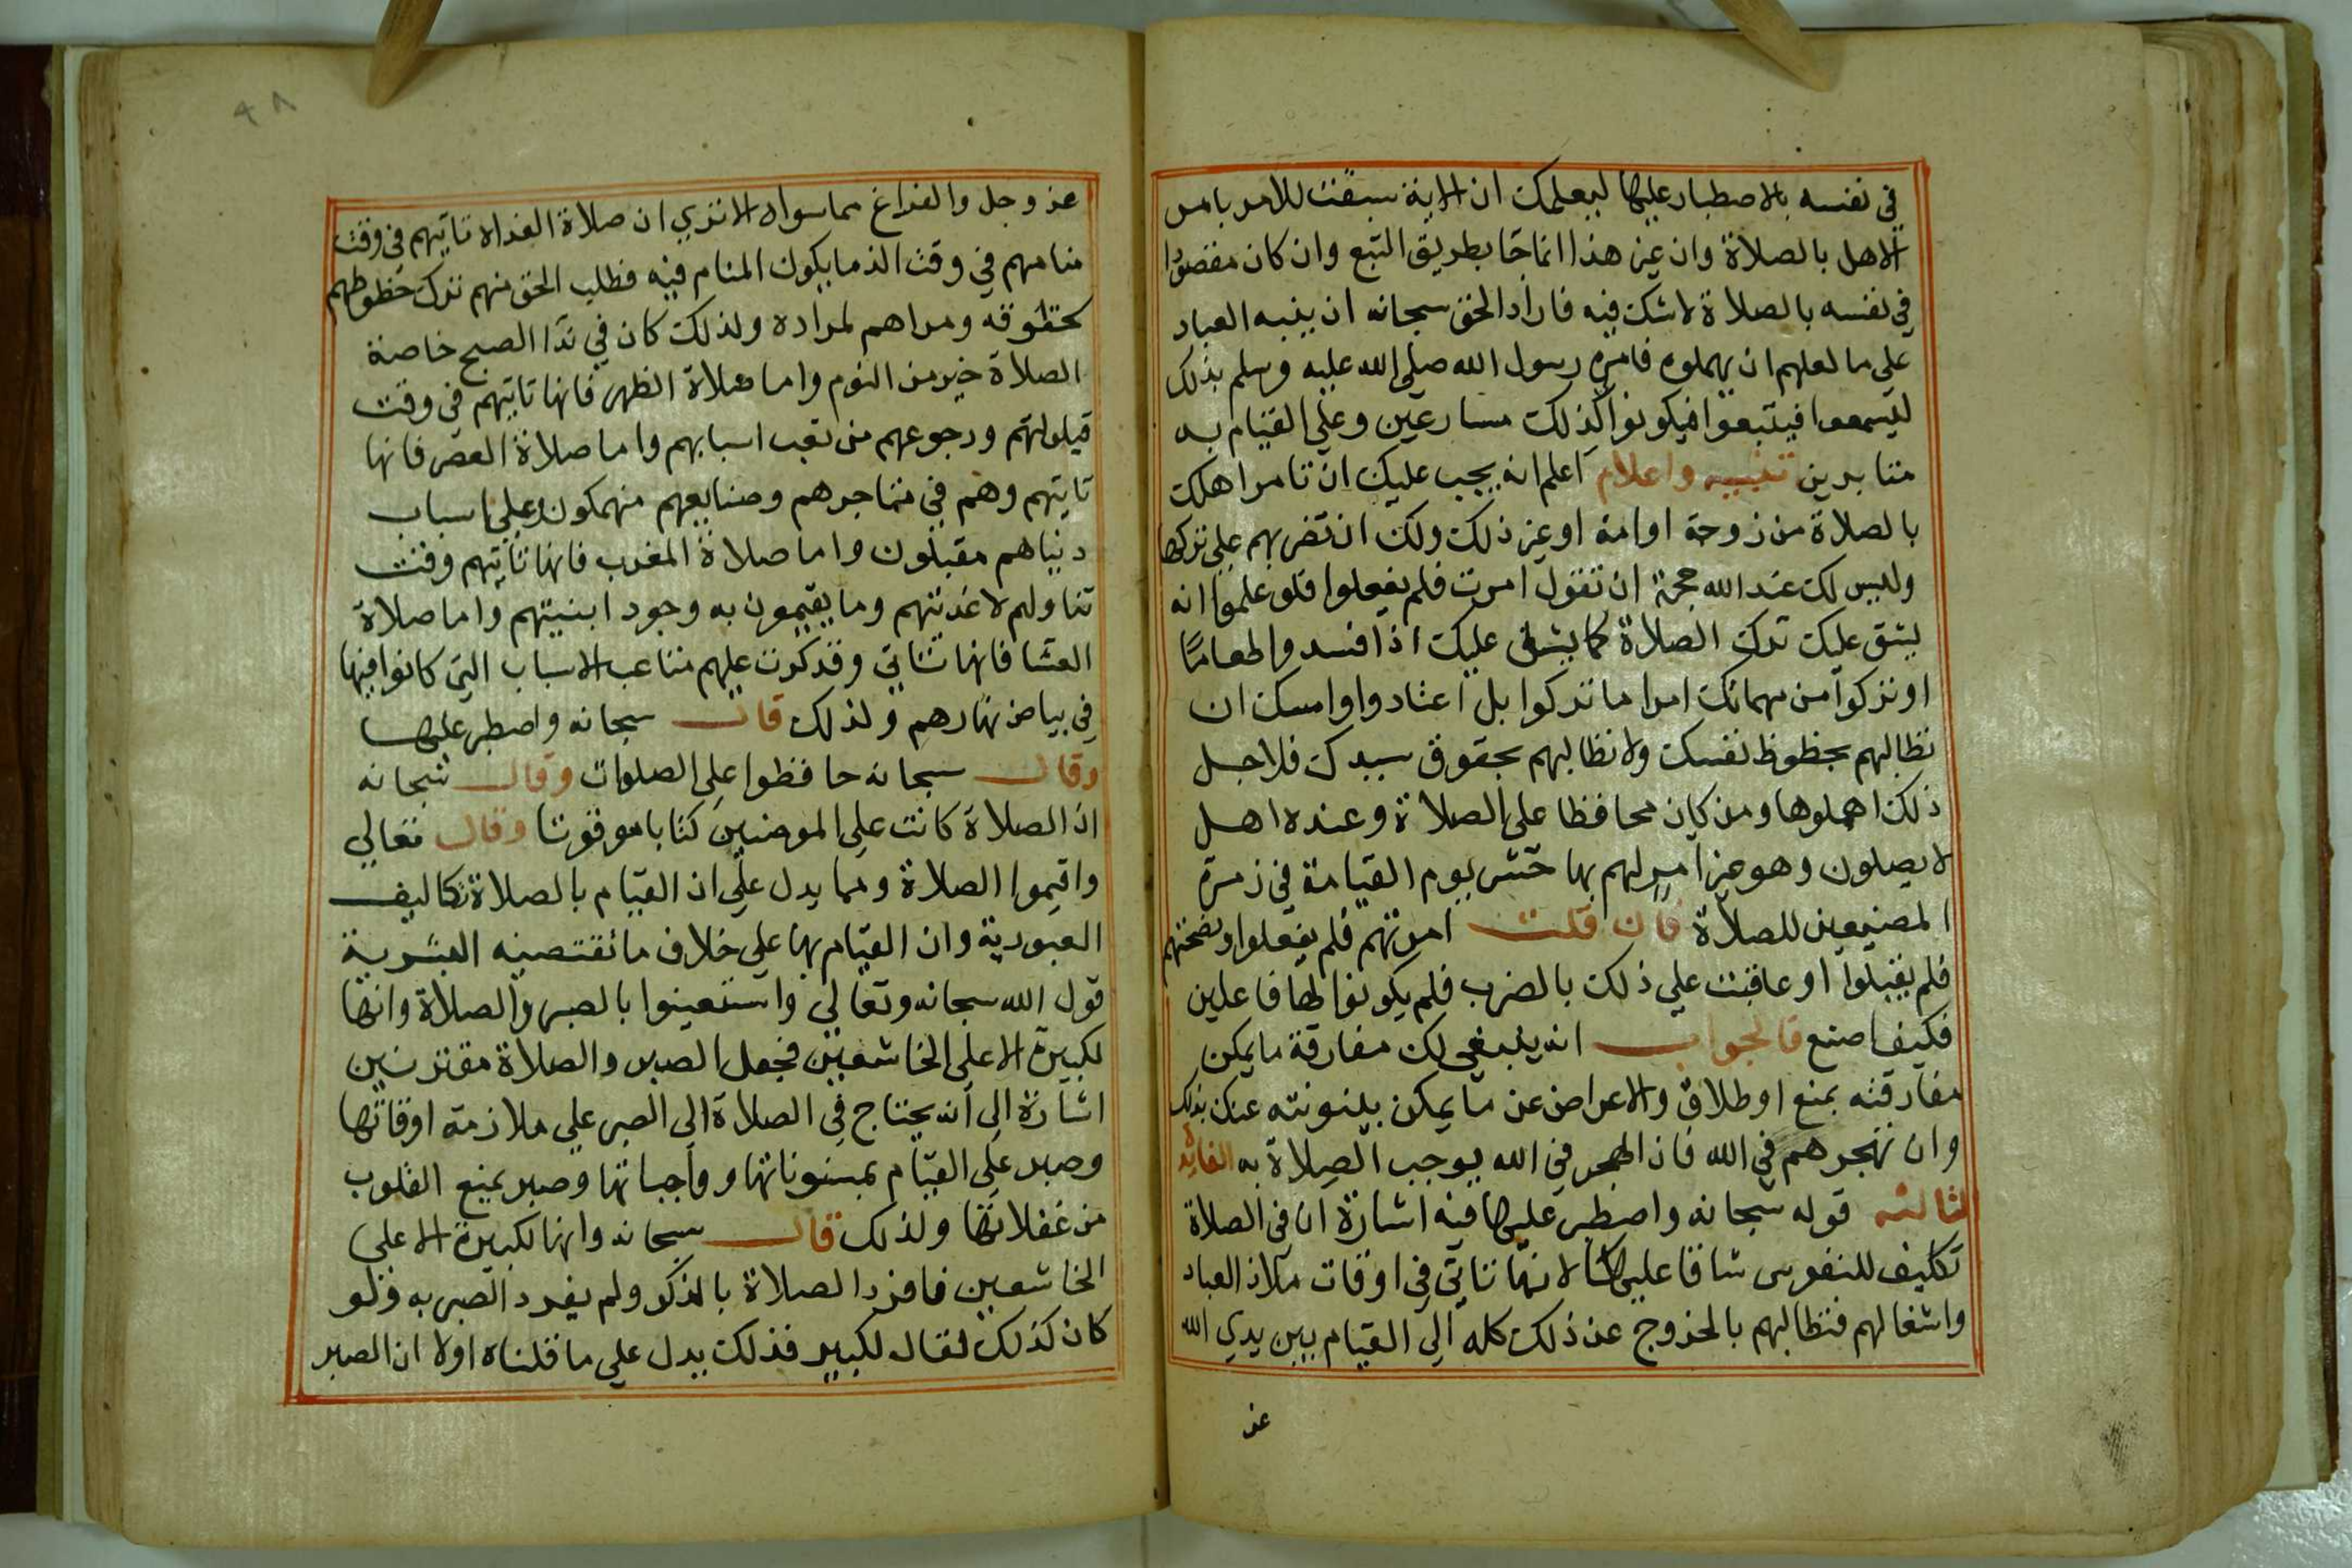 في نفسه بالاصطبار عليها ليعلمك ان الاية سبقت للامر بامر
الاهل بالصلاة وان غير هذا انما جا بطريق التبع وان كان مقصودا
في نفسه بالصلاة لا شك فيه فاراد الحق سبحانه ان ينبه العباد
علي ما لعلهم ان يهملوه فامره رسول الله صلي الله عليه وسلم بذلك
ليسمعوا فيتبعوا فيكونوا كذلك مسارعين وعلي القيام به
مثابرين تنبيه واعلام اعلم انه يجب عليك ان تامر اهلك
بالصلاة من زوجة او امة او غير ذلك ولك ان تضربهم علي تركها
وليس لك عند الله حجة ان تقول امرت فلم يفعلوا فلو علموا انه
يشق عليك ترك الصلاة كما يشق عليك اذا افسدوا طعاما
او تركوا من مهماتك امرا ما تركوا بل اعتادوا وامسك ان
تطالبهم بحظوظ نفسك ولا تطالبهم بحقوق سيدك فلاجل
ذلك اهملوها ومن كان محافظا علي الصلاة وعنده اهل
لا يصلون وهو غير امر لهم بها حشر يوم القيامة في زمرة
المضيعين للصلاة فان قلت امرتهم فلم يفعلوا ونصحتهم
فلم يقبلوا او عاقبت علي ذلك بالضرب فلم يكونوا لها فاعلين
فكيف اصنع فالجواب انه ينبغي لك مفارقة ما يمكن
مفارقته بمنع او طلاق والاعراض عن ما يمكن بينونته عنك بذلك
وان تهجرهم في الله فان الهجر في الله يوجب الصلاة به الفائدة
الثالثه قوله سبحانه واصطبر عليها فيه اشارة ان في الصلاة
تكليف للنفوس شاقا عليها لانها تاتي في اوقات ملاذ العباد
واشغالهم فتطالبهم بالخروج عن ذلك كله الي القيام بين يدي الله
عز
٩٨
عز وجل والفراغ مما سواه الا تري ان صلاة الغداة تاتيهم في وقت
منامهم في وقت الذ ما يكون المنام فيه فطلب الحق منهم ترك حظوظهم
لحقوقه ومراهم لمراده ولذلك كان في ندا الصبح خاصة
الصلاة خير من النوم واما صلاة الظهر فانها تاتيهم في وقت
قيلولتهم ورجوعهم من تعب اسبابهم واما صلاة العصر فانها
تاتيهم وهم في متاجرهم وصنايعهم منهمكون وعلي اسباب
دنياهم مقبلون واما صلاة المغرب فانها تاتيهم وقت
تناولهم لاغذتهم وما يقيمون به وجود ابنيتهم واما صلاة
العشا فانها تاتي وقد كرت عليهم متاعب الاسباب التي كانوا فيها
في بياض نهارهم ولذلك قال سبحانه واصطبر عليها
وقال سبحانه حافظوا علي الصلوات وقال سبحانه
ان الصلاة كانت علي المومنين كتابا موقوتا وقال تعالي
واقيموا الصلاة ومما يدل علي ان القيام بالصلاة تكاليف
العبودية وان القيام بها علي خلاف ما تقتضيه البشرية
قول الله سبحانه وتعالي واستعينوا بالصبر والصلاة وانها
لكبيرة الا علي الخاشعين فجعل الصبر والصلاة مقترنين
اشارة الي انه يحتاج في الصلاة الي الصبر علي ملازمة اوقاتها
وصبر علي القيام بمسنوناتها وواجباتها وصبر يمنع القلوب
من غفلاتها ولذلك قال سبحانه وانها لكبيرة الا علي
الخاشعين فافرد الصلاة بالذكر ولم يفرد الصبر به فلو
كان كذلك لقال لكبير فذلك يدل علي ما قلناه اولا ان الصبر